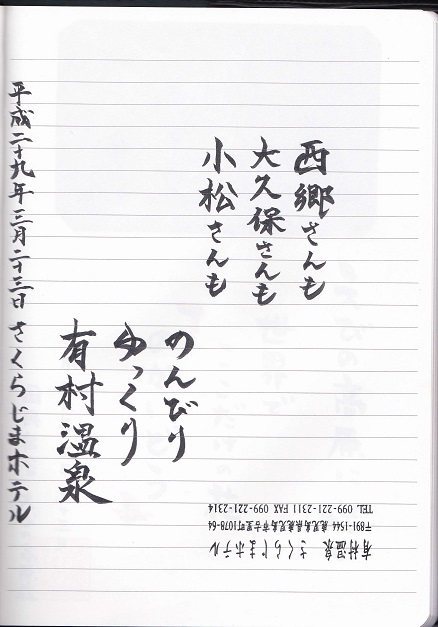 西郷さんも
大久保さんも
小松さんも
のんびり
ゆっくり
有村温泉
平成二十九年三月二十三日 さくらじまホテル
有村温泉 さくらじまホテル
〒891-1544 鹿児島県鹿児島市古里町1078-64
TEL 099-221-2311 FAX 099-221-2314